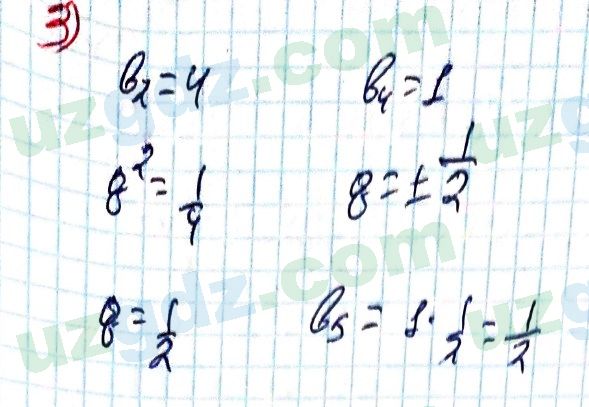 3)
b₂ = 4 b₄ = 1
q² = 1/4 q = ± 1/2
q = 1/2 b₅ = 1 · 1/2 = 1/2
uzgdz.com
uzgdz.com
uzgdz.com